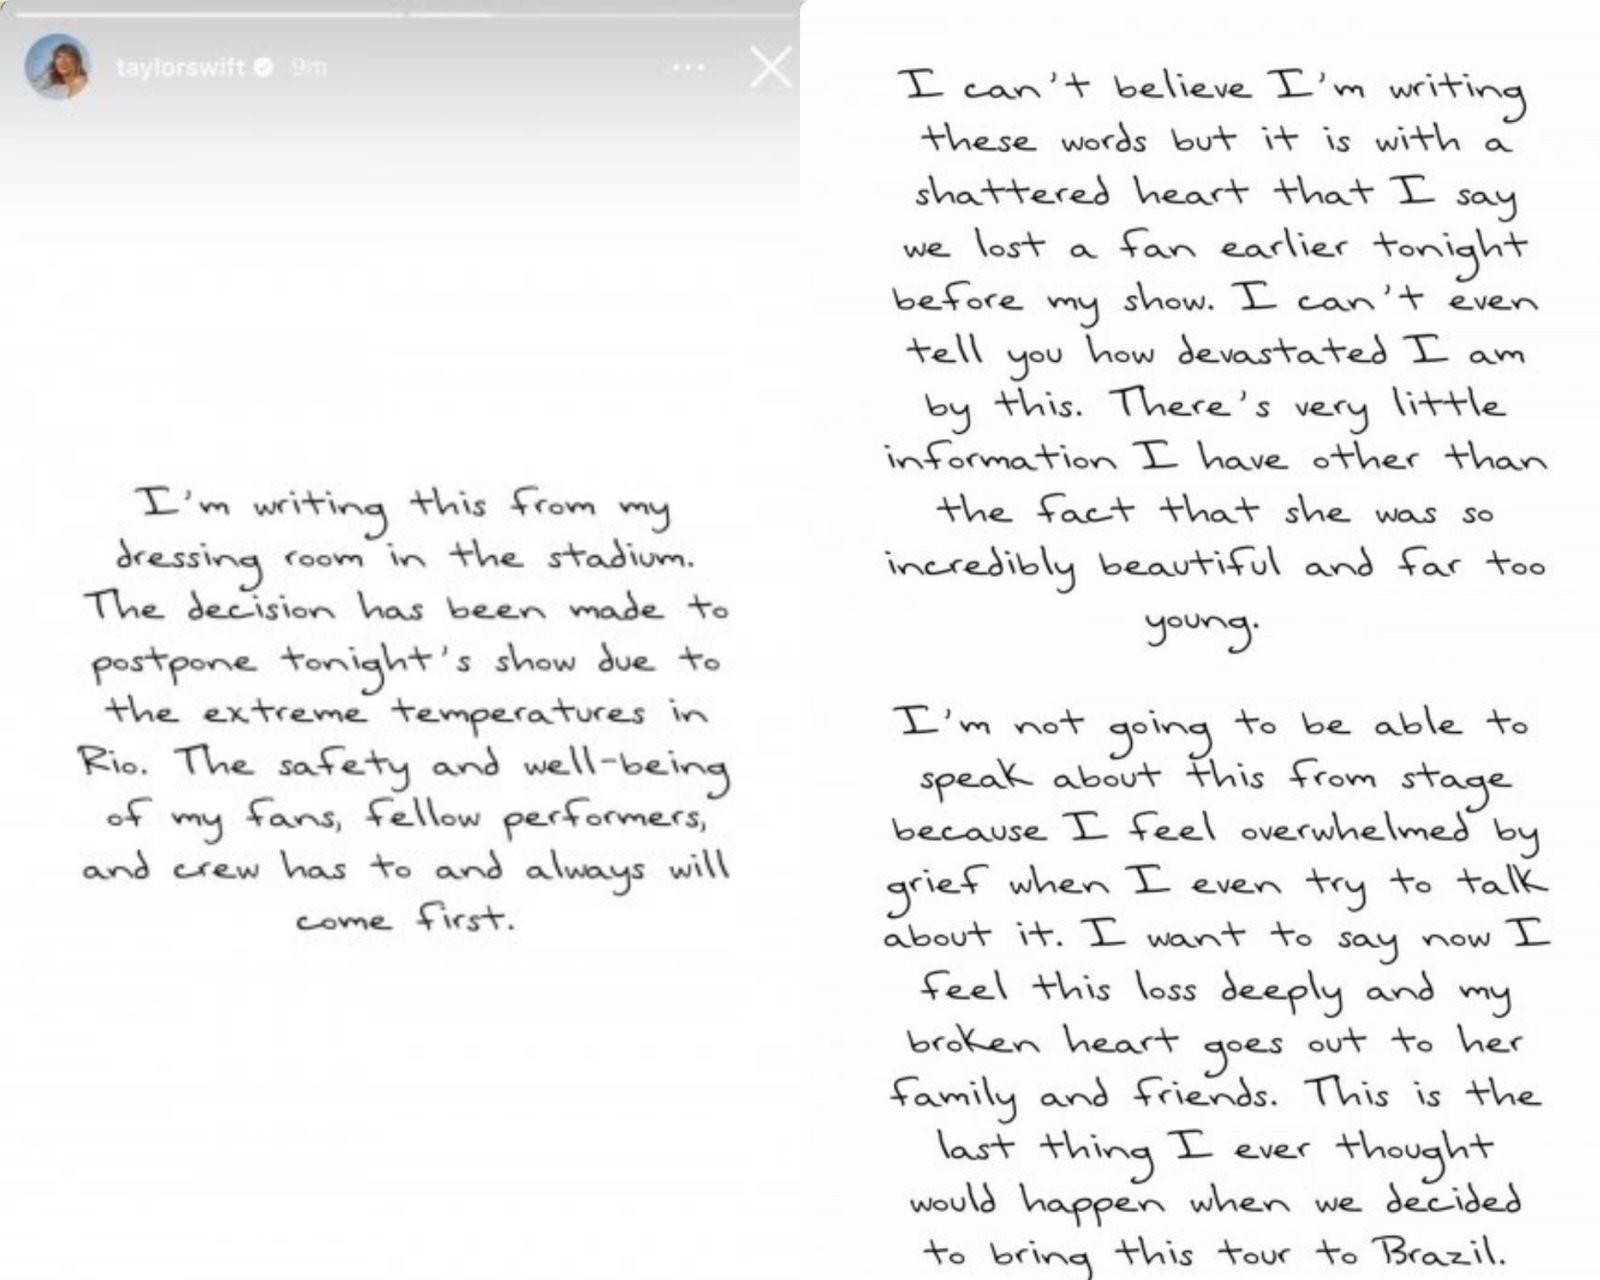 taylorswift 9m
I'm writing this from my
dressing room in the stadium.
The decision has been made to
postpone tonight's show due to
the extreme temperatures in
Rio. The safety and well-being
of my fans, fellow performers,
and crew has to and always will
come first.
I can't believe I'm writing
these words but it is with a
shattered heart that I say
we lost a fan earlier tonight
before my show. I can't even
tell you how devastated I am
by this. There's very little
information I have other than
the fact that she was so
incredibly beautiful and far too
young.
I'm not going to be able to
speak about this from stage
because I feel overwhelmed by
grief when I even try to talk
about it. I want to say now I
feel this loss deeply and my
broken heart goes out to her
family and friends. This is the
last thing I ever thought
would happen when we decided
to bring this tour to Brazil.